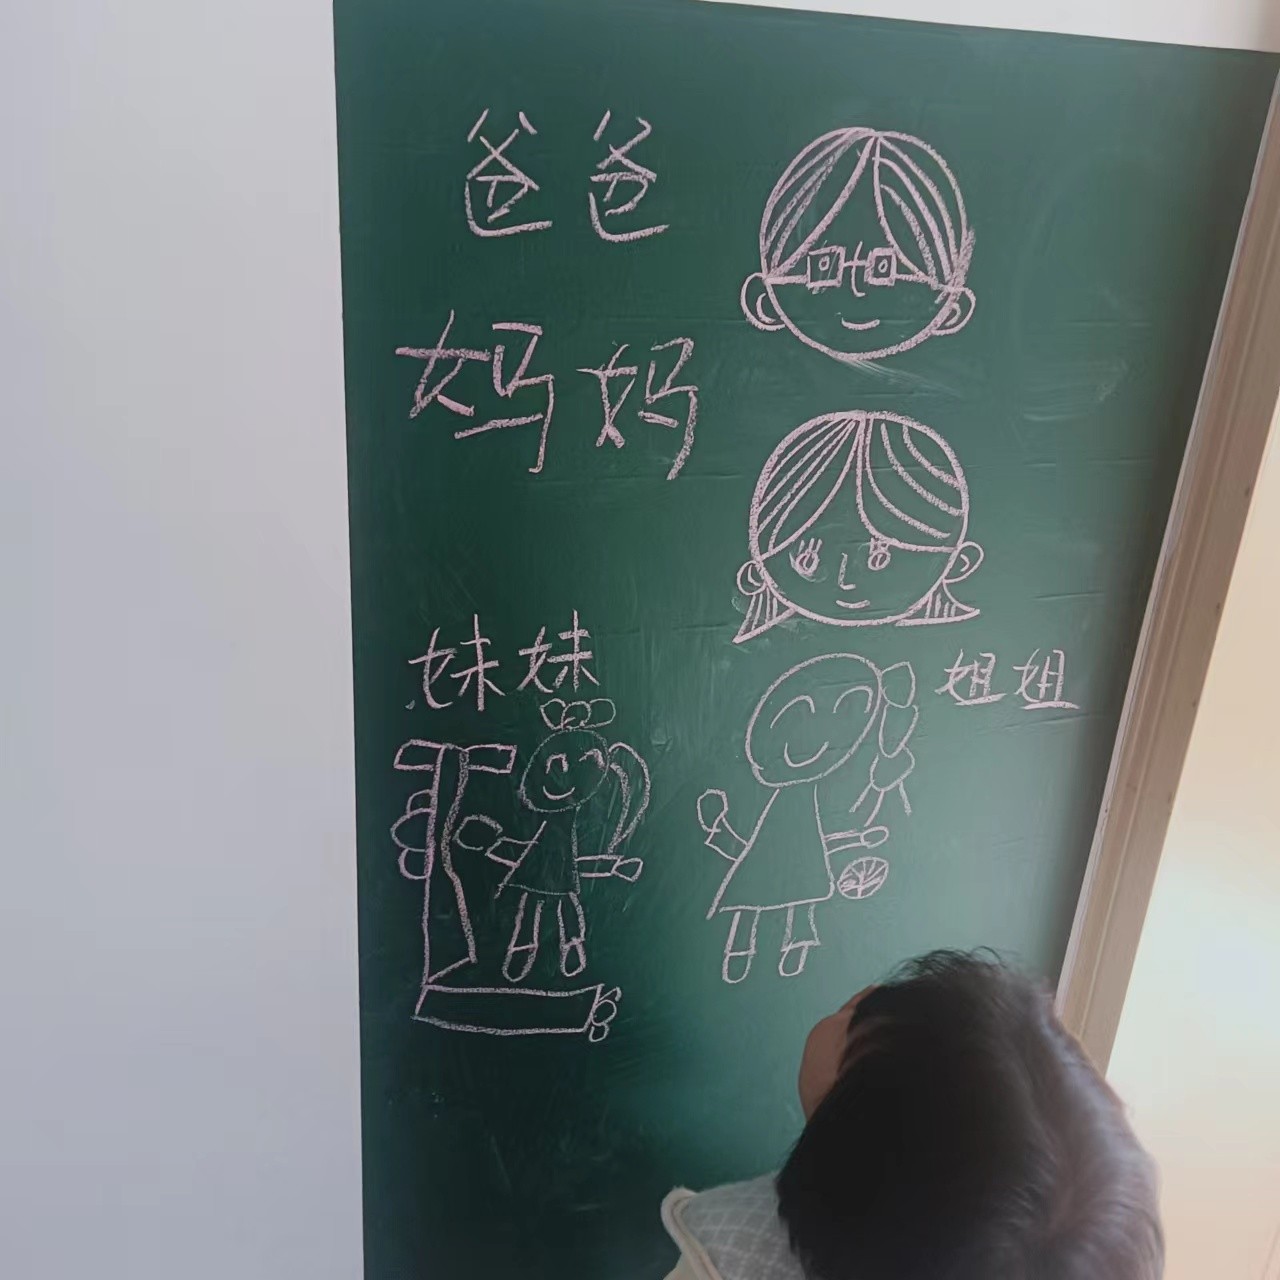 爸爸
妈妈
妹妹
姐姐